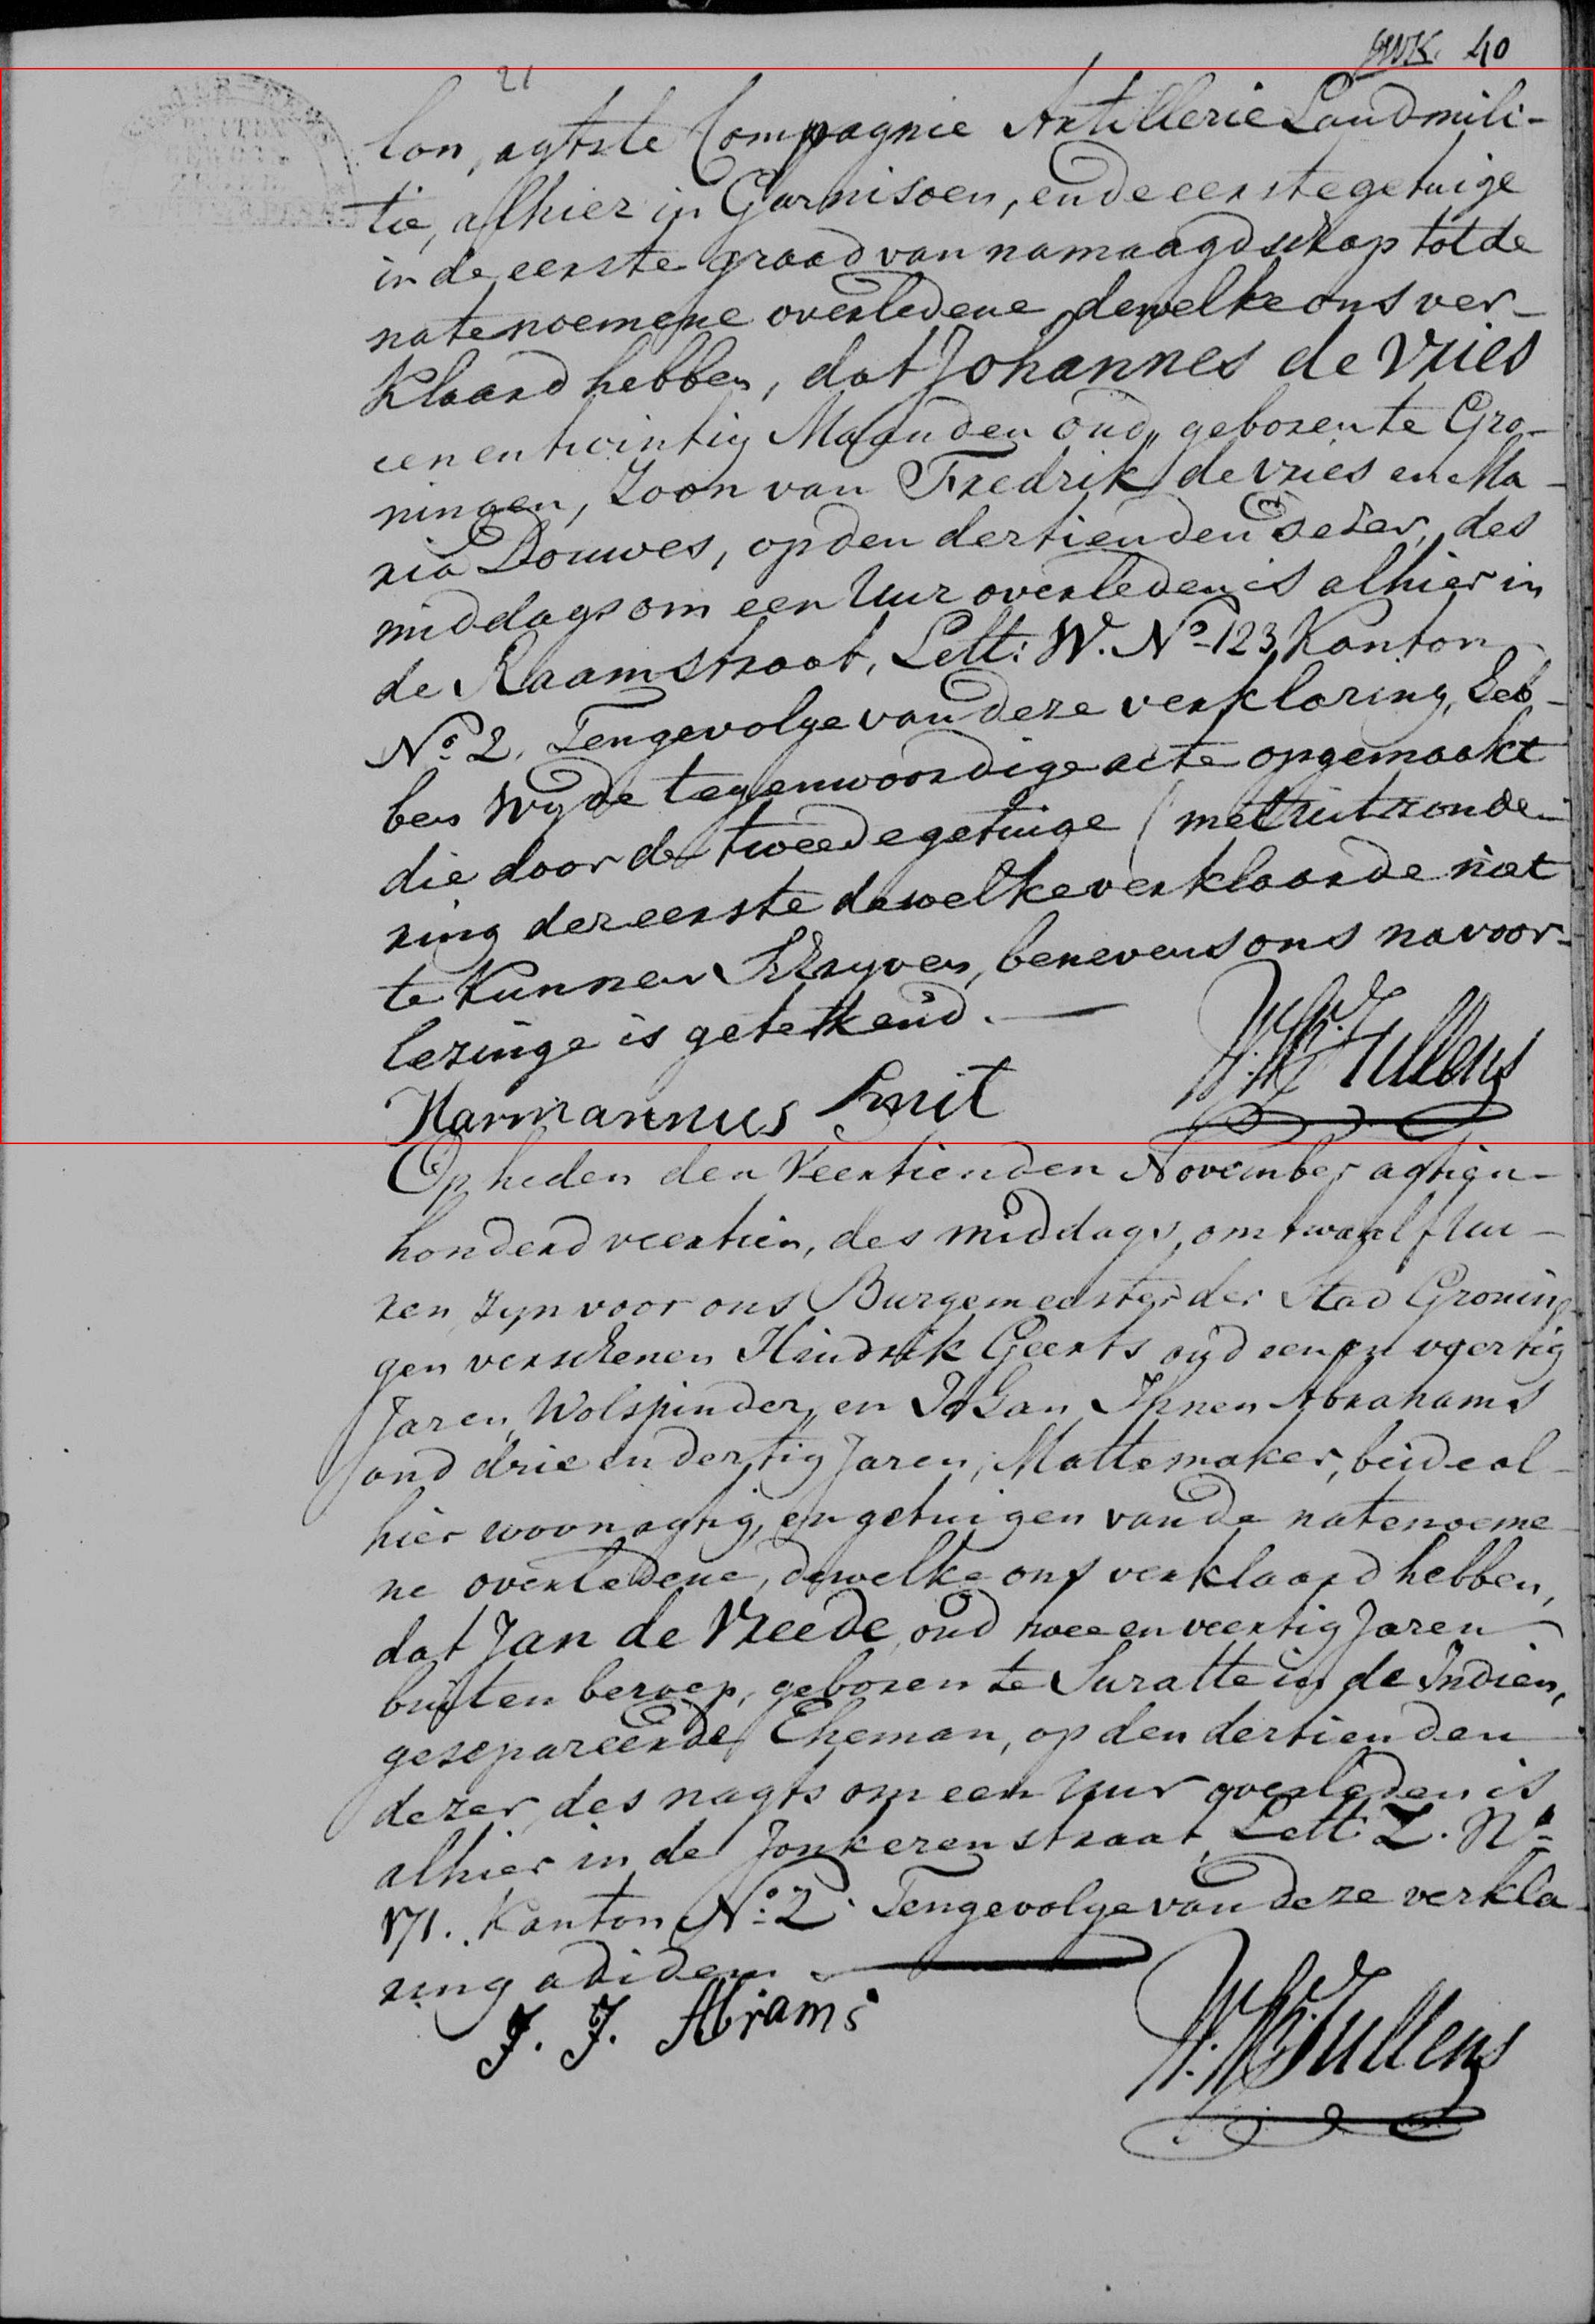 JWK. 40
21
lon, agtste Compagnie Artillerie Landmili-
tie, alhier in Garnisoen, en de eerste getuige
in de eerste graad van namaagdschap tot de
natenoemene overledene, dewelke ons ver-
klaard hebben, dat Johannes de Vries
een en twintig Maanden oud, geboren te Gro-
ningen, Zoon van Fredrik de Vries en Ma-
ria Douwes, op den dertienden dezer, des
middags om een Uur overleden is alhier in
de Raamstraat, Lett: W. No 123 Kanton
No 2. Tengevolge van deze verklaring, heb-
ben Wy de tegenwoordige acte opgemaakt
die door de tweede getuige (met uitzonde-
ring der eerste dewelke verklaarde niet
te kunnen Schryven, benevens ons na voor-
lezinge is getekend.
Harmannus Smit
Op heden den Veertienden November agtien-
honderd veertien, des middags om twaalf Uu-
ren, zyn voor ons Burgemeester der Stad Gronin-
gen verschenen Hindrik Geerts oud een en veertig
Jaren, Wolspinder, en Johan Ipnen Abrahams
oud drie en dertig Jaren, Mattemaker, beide al-
hier woonagtig, en getuigen van de natenoeme-
ne overledene, dewelke ons verklaard hebben,
dat Jan de Vreede, oud twee en veertig Jaren
buiten beroep, geboren te Suratte in de Indien,
gesepareerde Eheman, op den dertienden
dezer, des nagts om een Uur overleden is
alhier in de Jonkerenstraat, Lett: Z. No
171. Kanton No: 2. Tengevolge van deze verkla-
ring ad idem
J. J. Abrams